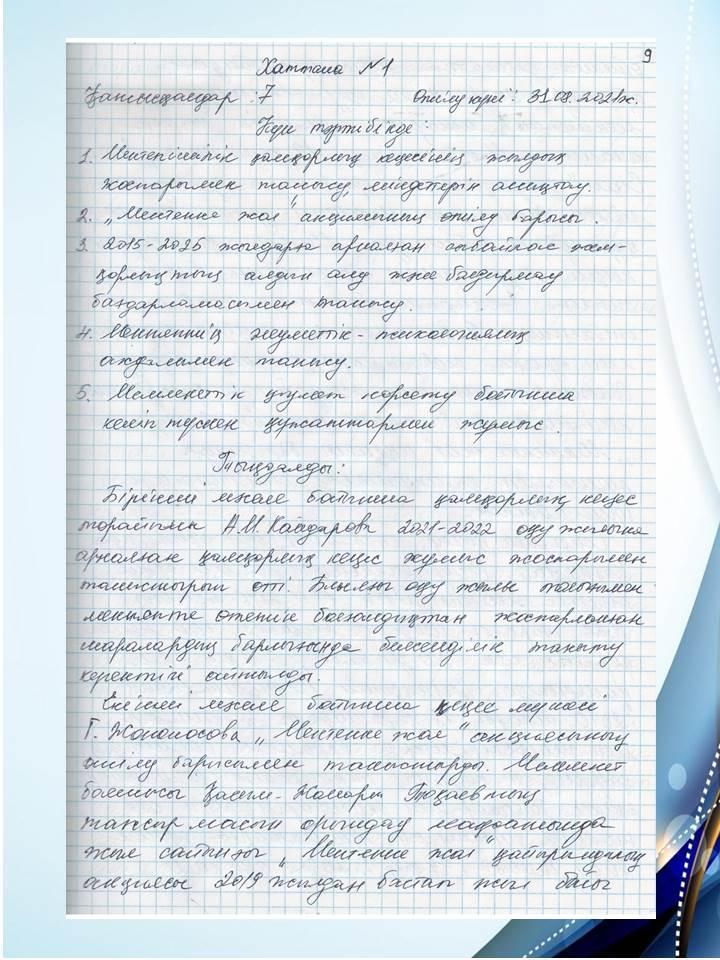 9
Хаттама №1
Қатысқандар: 7 Өтілу күні: 31.08.2021ж.
Күн тәртібінде:
1. Мектепішілік қамқорлық кеңесінің жылдық
жоспарымен танысу, міндеттерін анықтау.
2. „Мектепке жол" акциясының өтілу барысы.
3. 2015-2025 жылдарға арналған сыбайлас жем-
қорлықтың алдын алу және болдырмау
бағдарламасымен танысу.
4. Мектептің әлеуметтік-психологиялық
ахуалымен танысу.
5. Мемлекеттік қызмет көрсету бойынша
келіп түскен құжаттармен жұмыс.
Тыңдалды:
Бірінші мәселе бойынша қамқорлық кеңес
төрайымы А.М. 2021-2022 оқу жылына
арналған қамқорлық кеңес жұмыс жоспарымен
таныстырып өтті. Биылғы оқу жылы
мектепте өтетін жоспарланған
шаралардың барлығында белсенділік таныту
керектігі айтылды.
Екінші мәселе бойынша кеңес мүшесі
Г. „Мектепке жол" акциясының
өтілу барысымен таныстырды. Мемлекет
басшысы Қасым-Жомарт Тоқаевтың
тапсырмасын орындау мақсатында
жыл сайынғы „Мектепке жол" қайырымдылық
акциясы 2019 жылдан бастап жыл бойы